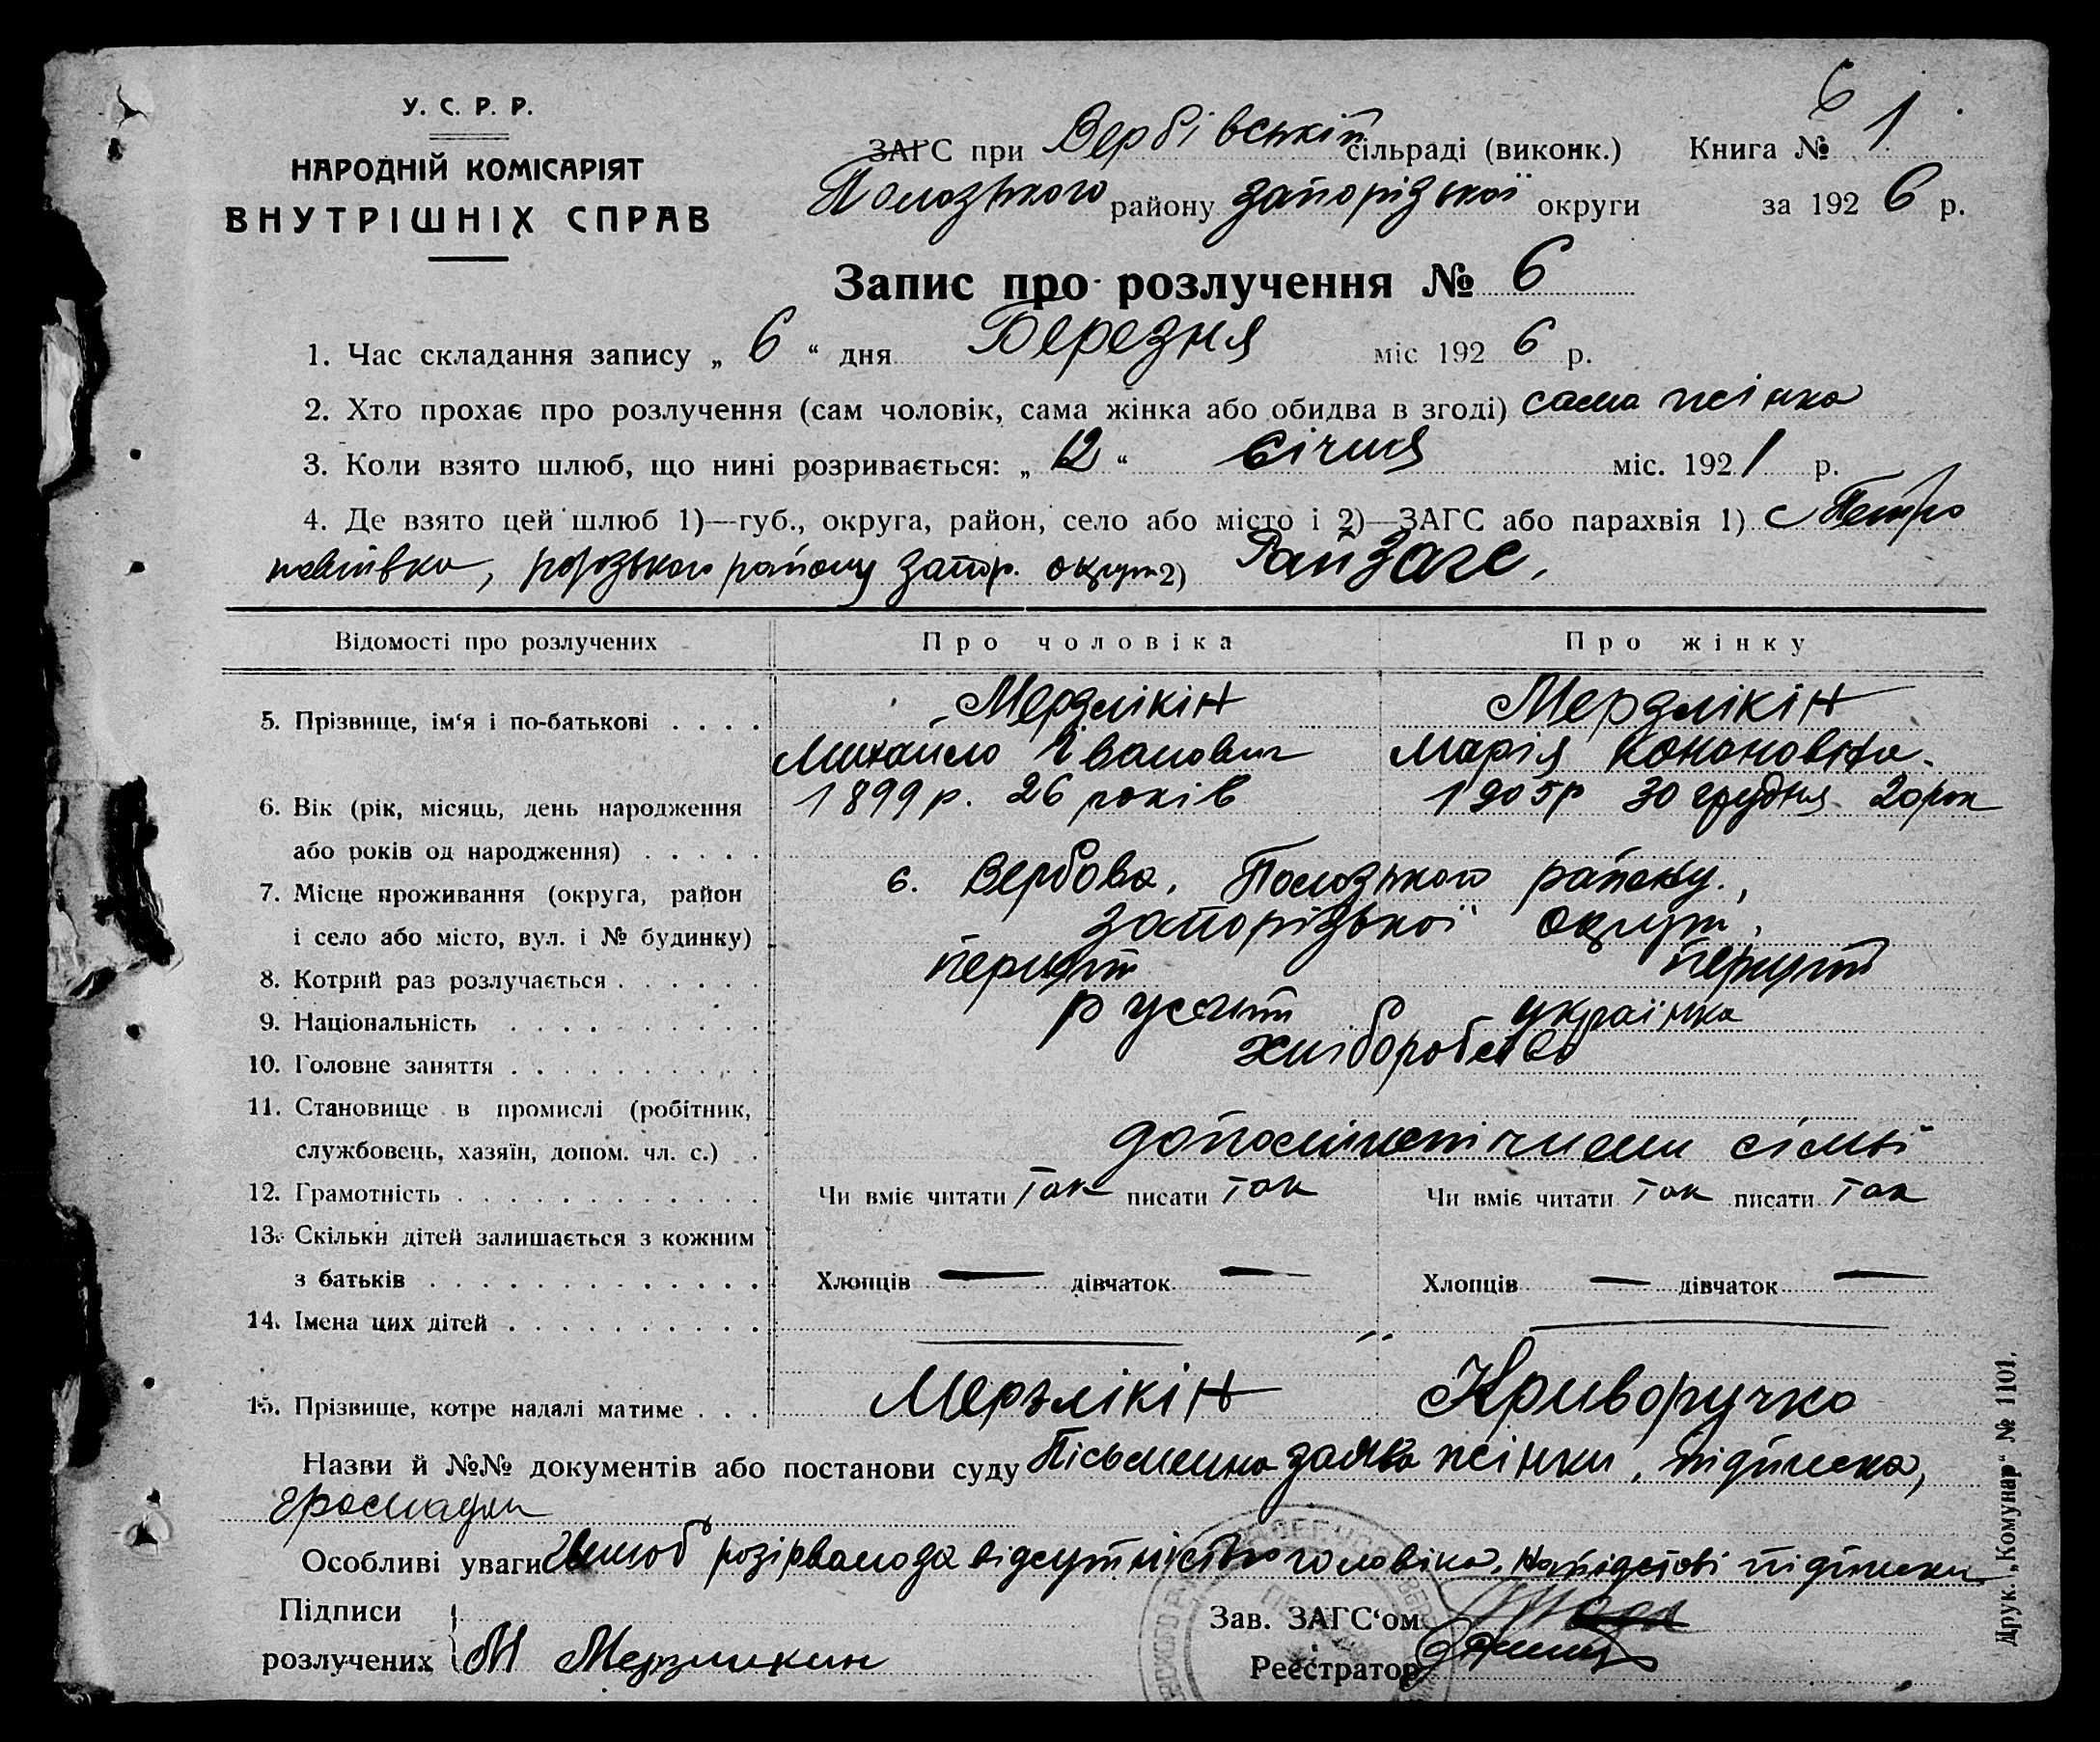 У. С. Р. Р.
НАРОДНІЙ КОМІСАРІЯТ
ВНУТРІШНІХ СПРАВ
6
ЗАГС при Вербівській сільраді (виконк.) Книга № 1
Пологзького району запорізької округи за 1926 р.
Запис про розлучення № 6
1. Час складання запису „ 6 “ дня Березня міс 1926 р.
2. Хто прохає про розлучення (сам чоловік, сама жінка або обидва в згоді) сама жінка
3. Коли взято шлюб, що нині розривається: „ 12 “ Січня міс. 1921 р.
4. Де взято цей шлюб 1)—губ., округа, район, село або місто і 2)—ЗАГС або парахвія 1) с Петро
павлівка, району Запор. округи 2) РайЗагс.
Відомості про розлучених Про чоловіка Про жінку
5. Прізвище, ім‘я і по-батькові . . . . Мерзлікін Мерзлікін
Михайло Іванович Марія Кононовна.
6. Вік (рік, місяць, день народження 1899 р. 26 років 1905р 30 грудня 20 рок
або років од народження) . . . . .
7. Місце проживання (округа, район с. Вербова, Пологзького району,
і село або місто, вул. і № будинку) запорізької округи,
8. Котрий раз розлучається . . . . . . перший перший
9. Національність . . . . . . . . . . руський українка
10. Головне заняття . . . . . . . . . . хліборобство
11. Становище в промислі (робітник,
службовець, хазяїн, допом. чл. с.) . . сімьї
12. Грамотність . . . . . . . . . . . . Чи вміє читати так писати так Чи вміє читати так писати так
13. Скільки дітей залишається з кожним
з батьків . . . . . . . . . . . . . Хлопців — дівчаток — Хлопців — дівчаток —
14. Імена цих дітей . . . . . . . . . .
15. Прізвище, котре надалі матиме . . . Мерзлікін Криворучко
Назви й №№ документів або постанови суду Пісьменна заява жінки, підписка,
громадян
Особливі уваги Шлюб розірвано за відсутністю чоловіка, на підставі підписки
Підписи
розлучених М Мерзликин
Зав. ЗАГС‘ом
Реєстратор
Друк. „Комунар“ № 1101.